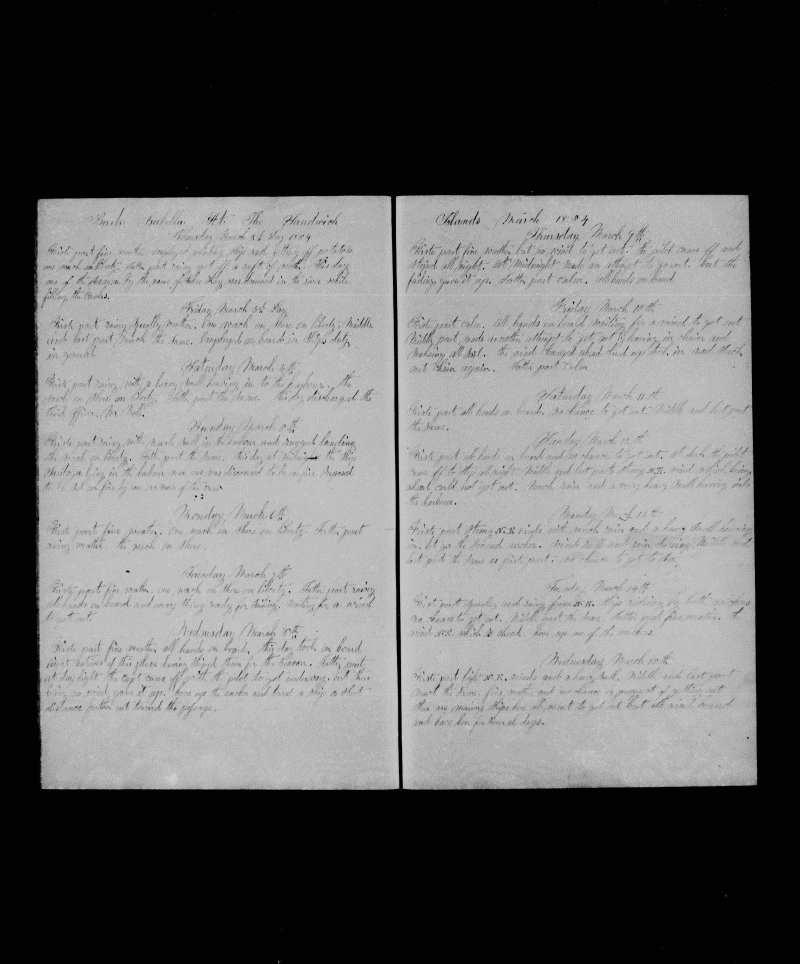 Bark Isabella At The Sandwich
Thursday March 2d Day 1854
Firste part fine weather employed painting ship and getting off potatoes
one watch on Liberty. Latter part rainy got off a raft of water. This day
one of the by the name of was drowned in the river while
filling the casks.
Friday March 3d Day
Firste part rainy Squally weather. One watch on shore on Liberty. Middle
and last part much the same. Employed on board in Ships duty
in general
Saturday March 4th
Firste part rainy with a heavy swell heaving in to the harbour. the
watch on shore on Liberty. Latter part the same. this day discharged the
third officer Mr.
Sunday March 5th
Firste part rainy with much swell in the harbour and rugged landing
the watch on Liberty. Latter part the same. this day at midnight the Ship
lying in the harbour near us was discovered to be on fire. Supposed
to be set on fire by one or more of the crew
Monday March 6th
Firste part fine weather. One watch on shore on Liberty. Latter part
rainy weather. the watch on shore.
Tuesday March 7th
Firste part fine weather, one watch on shore on Liberty. Latter part rainy
all hands on board and every thing ready for Sailing. waiting for a wind
to get out
Wednesday March 8th
Firste part fine weather all hands on board. this day took on board
eight natives of this place having Shiped them for the Season. Latter part
at day light the capt came off with the pilot to get underway. but there
being no wind gave it up. hove up the anchor and towed a Ship a short
distance farther out toward the passage.
Islands March 1854
Thursday March 9th
Firste part fine weather but no wind to get out. the pilot came off and
stoped all night. At Midnight made an attempt to go out. but the
failing gave it up. Latter part calm. All hands on board
Friday March 10th
Firste part calm. All hands on board waiting for a wind to get out
Middle part made another attempt to get out by heaving in chain and
making all Sail. the wind hauged ahead hauled up took in and
out chain again. Latter part calm
Saturday March 11th
Firste part all hands on board. no chance to get out. Middle and last part
the same.
Sunday March 12th
Firste part all hands on board and no chance to get out. At dark the pilot
came off to stop all night. Middle and last parts strong N.E. wind which being
ahead could not get out. Much rain and a very heavy Swell heaving into
the harbour.
Monday March 13th
Firste part Strong N.E. winds with much rain and a heavy Swell heaving
in let go the Second anchor. Middle and
last part the same as first part. no chance to get to Sea.
Tuesday March 14th
First part squally and rainy from N.E. Ship riding by both anchors
no chance to get out. Middle part the same. Latter part fine weather. A
wind N.E. which is ahead. hove up one of the anchors
Wednesday March 15th
Firste part light N.E. winds and a heavy swell. Middle and last part
much the same. fine weather and no chance or prospect of getting out
there are Ships here all want to get out but the wind ahead
and have been for Several days.